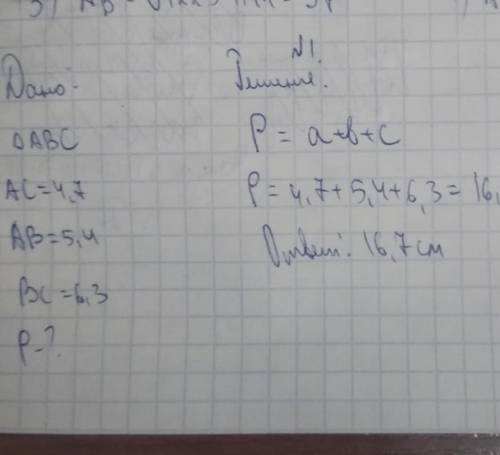 №1.
Дано:
Решение:
ΔABC
P = a+b+c
AC=4,7
P= 4,7+5,4+6,3= 16,
AB=5,4
Ответ: 16,7 см
BC=6,3
P-?